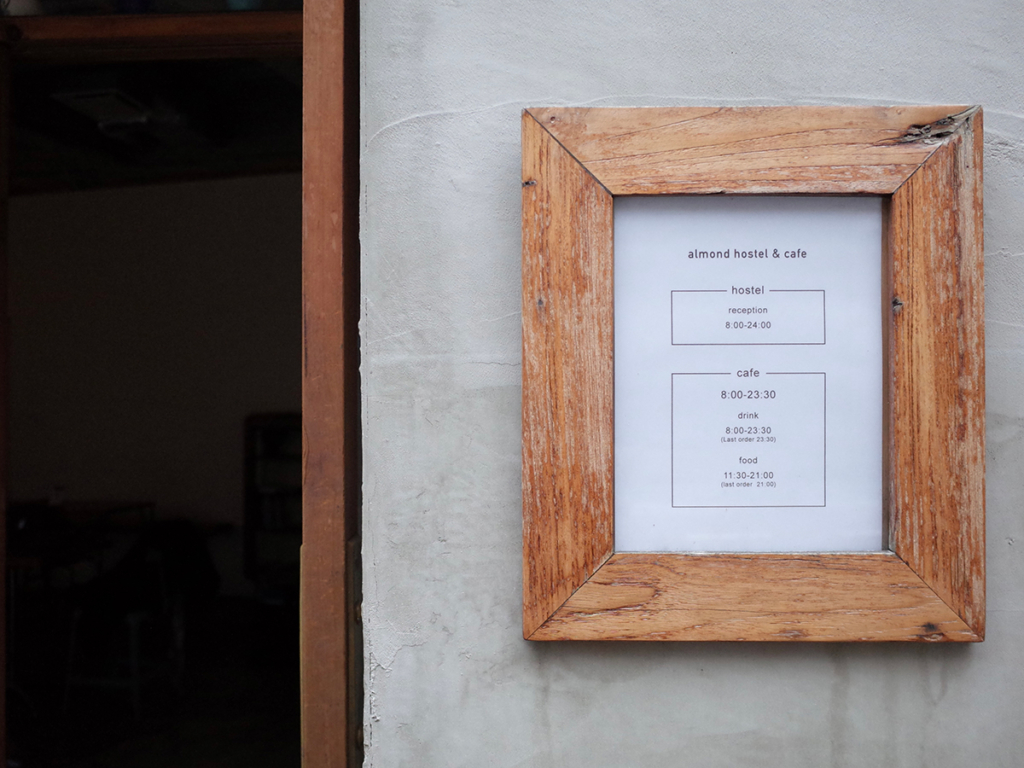 almond hostel & cafe
hostel
reception
8:00-24:00
cafe
8:00-23:30
drink
8:00-23:30
(Last order 23:30)
food
11:30-21:00
(last order 21:00)